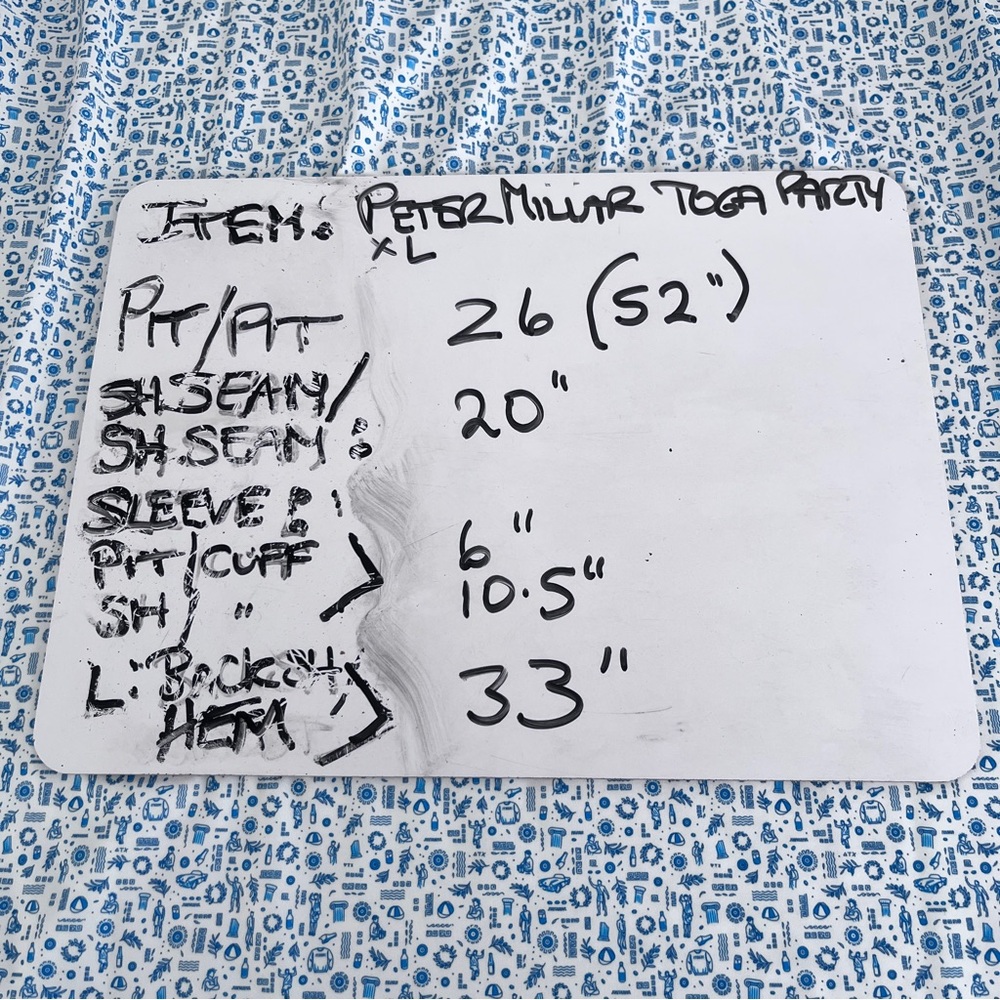 ITEM: PETER MILLAR TOGA PARTY
XL
PIT/PIT 26 (52")
SH.SEAM/
SH.SEAM: 20"
SLEEVE:
PIT/CUFF 6"
SH/ " 10.5"
L: Back
HEM 33"